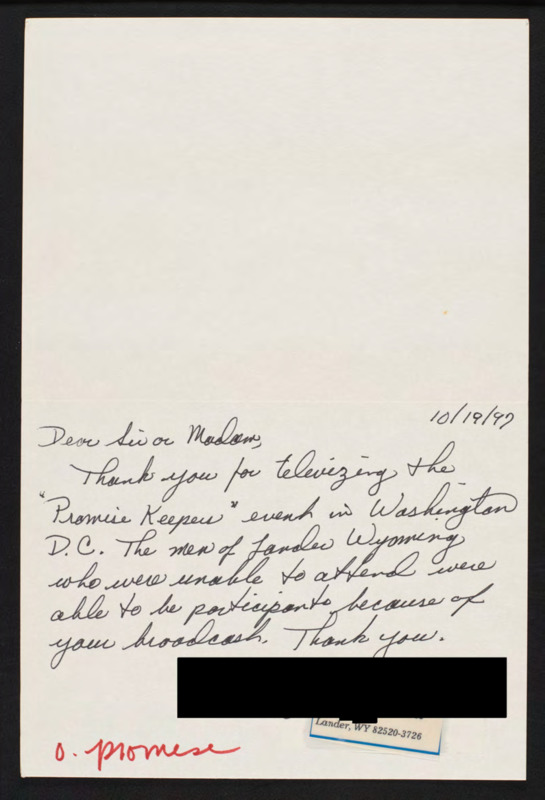 10/19/97
Dear Sir or Madam,
Thank you for televizing the
"Promise Keepers" event in Washington
D.C. The men of Lander Wyoming
who were unable to attend were
able to be participants because of
your broadcast. Thank you.
Lander, WY 82520-3726
o. promise